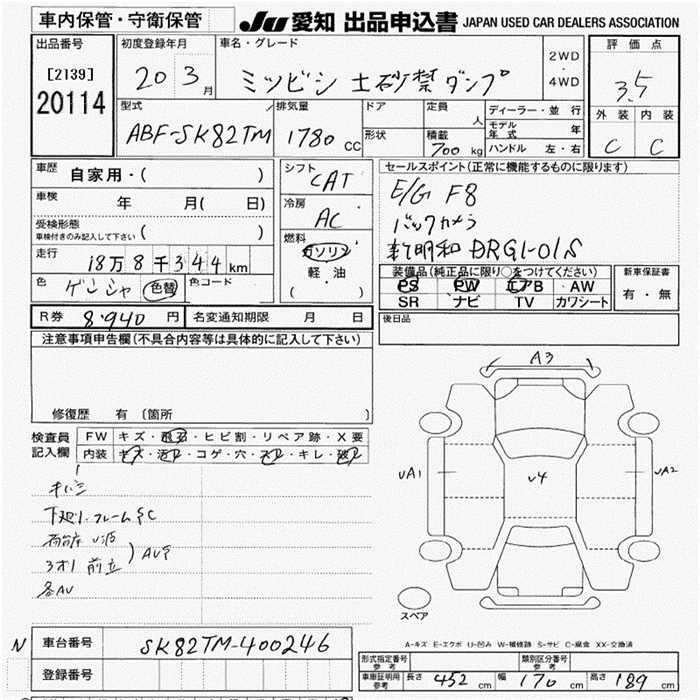 車内保管・守衛保管
JU 愛知 出品申込書 JAPAN USED CAR DEALERS ASSOCIATION
出品番号
[2139]
20114
初度登録年月
20 3月
車名・グレード
ミツビシ 土砂禁ダンプ
2WD
4WD
評価点
3.5
外装 内装
C C
型式
ABF-SK82TM
排気量
1780 CC
ドア
形状
定員
人
積載
700 kg
ディーラー・並行
モデル年式 年
ハンドル 左・右
車歴
自家用・( )
車検
年 月( 日)
受検形態
車検付きのみ記入して下さい ( )
走行
18万8千344km
色
ゲンシャ 色替
色コード
R券 8.940 円
名変通知期限 月 日
シフト
CAT
冷房
AC
燃料
ガソリン
軽油
( ・ )
セールスポイント(正常に機能するものに限ります)
E/G F8
バックカメラ
新明和 DRG1-01S
装備品(純正品に限り○をつけてください)
PS PW エアB AW
SR ナビ TV カワシート
新車保証書
有・無
後日品
注意事項申告欄(不具合内容等は具体的に記入して下さい)
修復歴 有 (箇所 )
検査員記入欄
FW キズ・飛石・ヒビ割・リペア跡・X要
内装 キズ・汚レ・コゲ・穴・スレ・キレ・破レ
下廻リ.フレームSC
荷台床 U凹
3オリ 前立
AUS
各AU
A3
UA1
U4
UA2
スペア
A-キズ E-エクボ U-凹み W-補修跡 S-サビ C-腐食 XX-交換済
N
車台番号 SK82TM-400246
登録番号
形式指定番号 参考
類別区分番号 参考
車庫証明用 参考
長さ 452 cm 幅 170 cm 高さ 189 cm